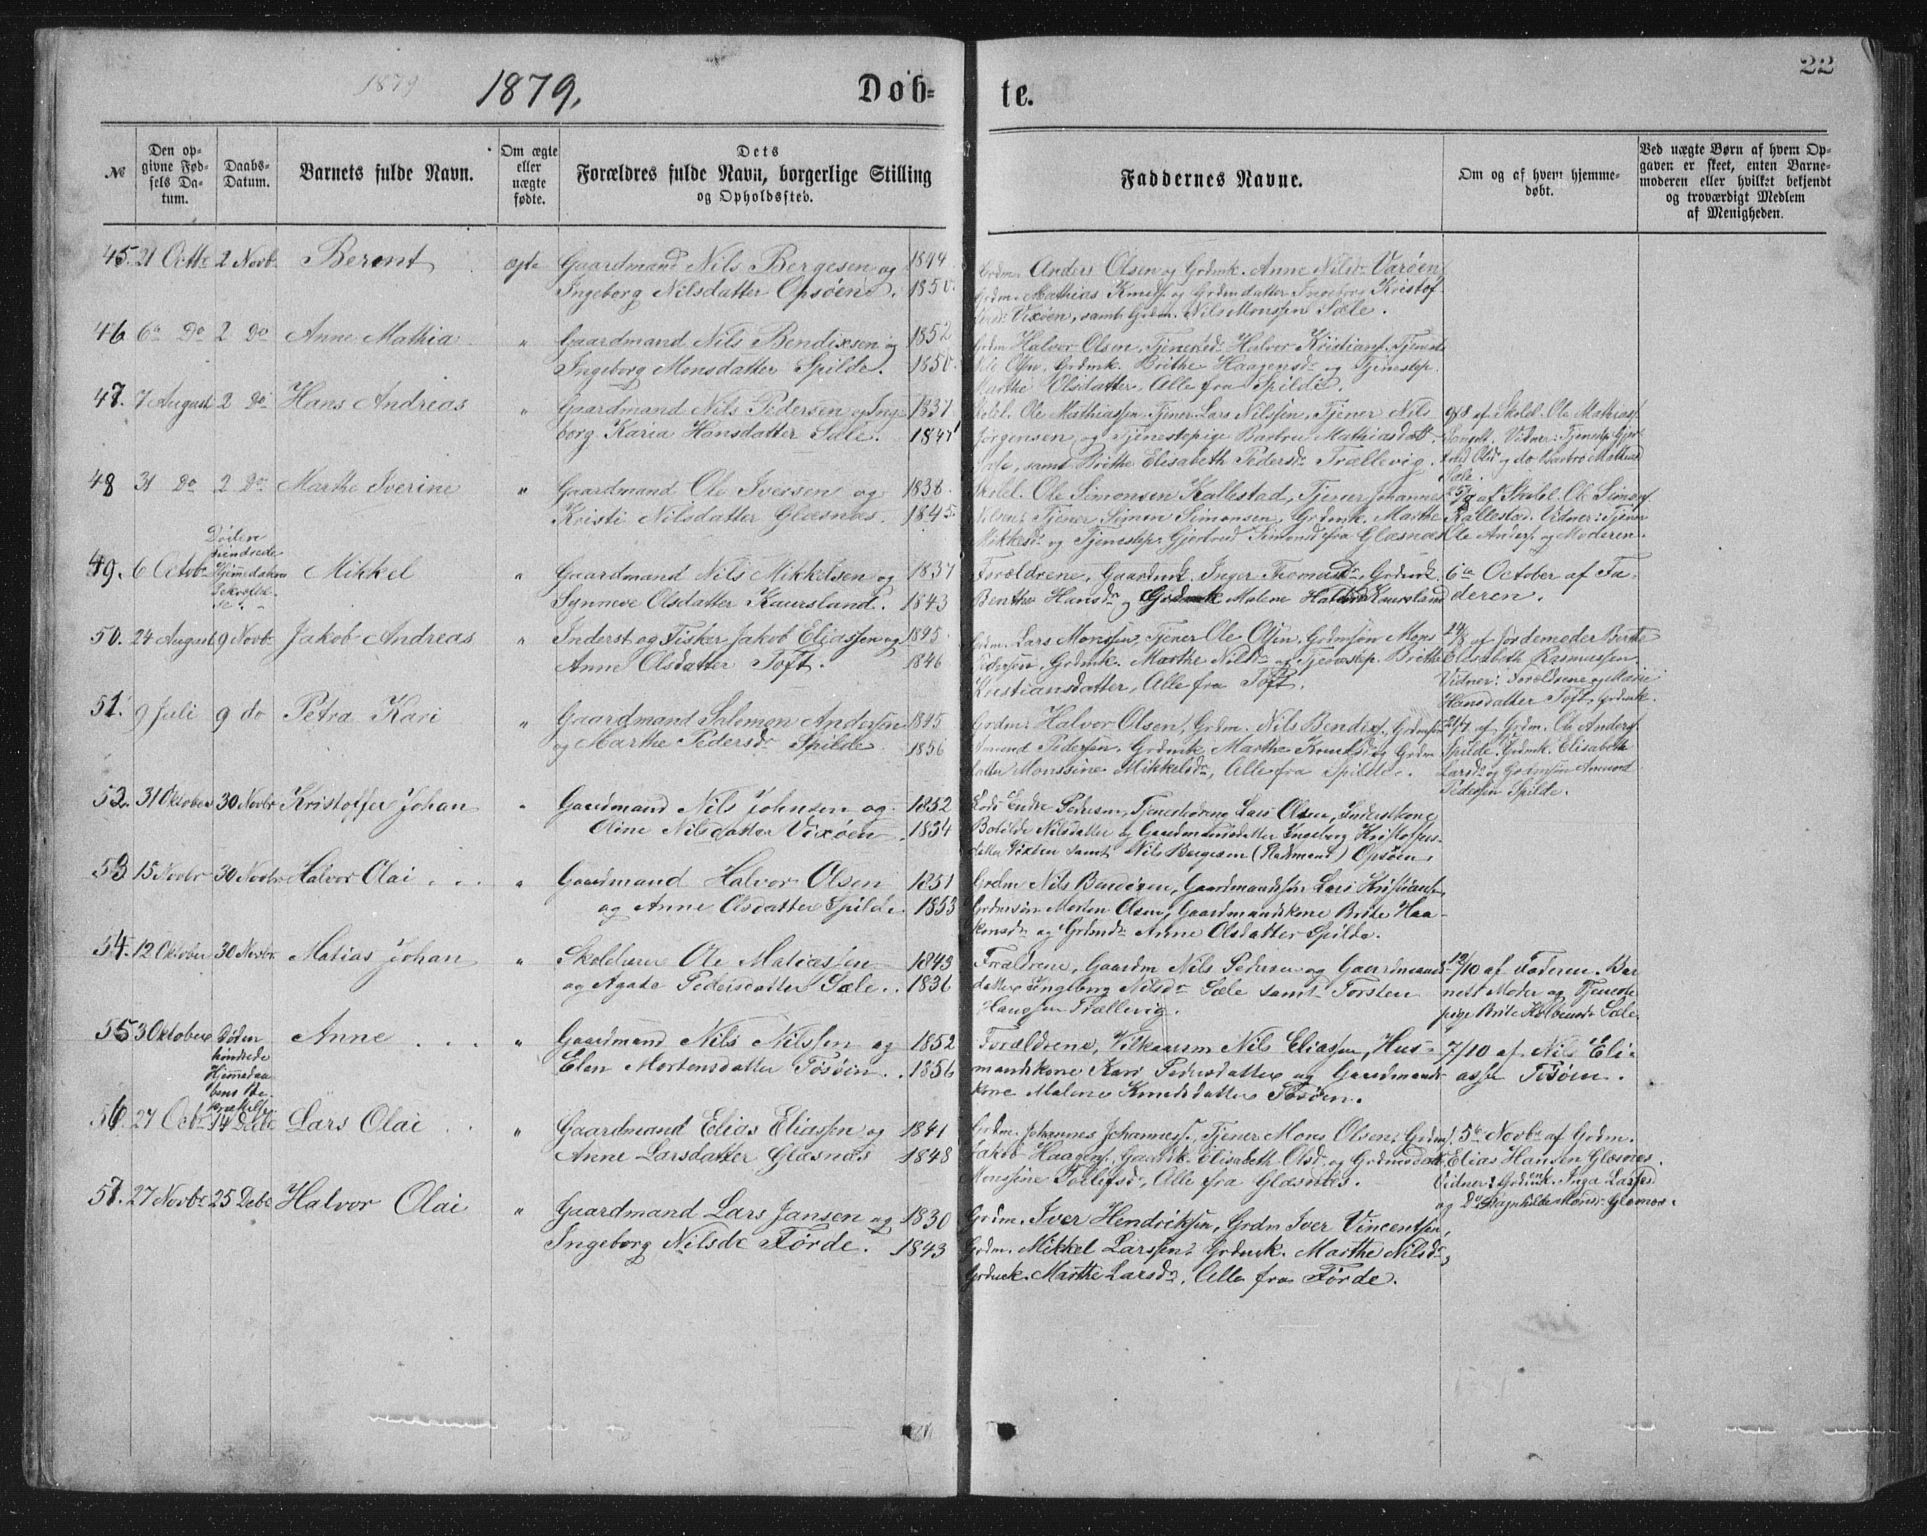 1879
1879.
Døb-
te.
22
№
Den op-
givne Fød-
sels Da-
tum.
Daabs-
Datum.
Barnets fulde Navn.
Om ægte
eller
uægte
fødte.
Dets
Forældres fulde Navn, borgerlige Stilling
og Opholdssted.
Faddernes Navne.
Om og af hvem hjemme-
døbt.
Ved uægte Børn af hvem Op-
gaven er skeet, enten Barne-
moderen eller hvilket bekjendt
og troværdigt Medlem
af Menigheden.
45. 21 Octbr 2 Novb. Berent ægte Gaardmand Nils Bergesen og 1844
Ingeborg Nilsdatter Opsøen. 1850.
Grdm. Anders Olsen og Grdmk. Anne Nilsdr Varøen,
Grdm. Mathias Knuds. og Grdmdatter Ingeborg Kristof
Vixøen, samt Grdm. Nils Monssen Sæle.
46 6te Do 2 Do Anne Mathia " Gaardmand Nils Bendixsen og 1852
Ingeborg Monsdatter Spilde. 1850.
Grdm Halvor Olsen, Halvor Kristians. Tjenest
Ole Olsen, Grdmk. Brithe Haagensdr og Tjenestep.
Marthe Olsdatter, Alle fra Spilde.
47. 7 August 2 Do Hans Andreas " Gaardmand Nils Pedersen og Inge 1837.
borg Karia Hansdatter Sæle. 1847
Skolel. Ole Mathiassen, Tjener Lars Nilssen, Tjener Nils
Jørgensen og Tjenestepige Barbru Mathiasdatt.
Sæle, samt Brithe Elisabeth Pedersdr Trællevig.
9/8 af Skolel. Ole Mathiass.
Vidner: Tjenestep. Gjer
trud Olsd og do Barbro Mathiasd
Sæle.
48 31 Do 2 Do Marthe Iverine " Gaardmand Ole Iversen og 1838.
Kristi Nilsdatter Glæsnæs. 1845.
Skolel. Ole Simonsen Kallestad, Tjener Johannes
Nilsen, Tjener Simon Simonsen, Grdmk. Marthe
Mikkelsdr og Tjenestep. Gjertrud Simonsd fra Glæsnæs
af Skolel. Ole Simons.
Kallestad. Vidner: Tjener
Ole Anders. og Moderen.
49. 6 Octobr Døden
hindrede
Hjemmedaabens
Bekræftel
se. Mikkel " Gaardmand Nils Mikkelsen og 1837
Synneve Olsdatter Kaursland. 1843
Forældrene, Gaardmk. Inger Thomasdr, Grdmk.
Benthe Hansdr og Grdmk Malene Kaursland
6te October af Fa-
deren.
50. 24 August 9 Novb. Jakob Andreas " Inderst og Fisker Jakob Eliassen og 1845.
Anne Olsdatter Toft. 1846
Grdm. Lars Monssen, Tjener Ole Olsen, Grdmsøn Mons
Pedersen, Grdmk. Marthe Nilsdr og Tjenestep. Brithe
Kristiansdatter, Alle fra Toft.
24/8 af Jordemoder Berte
Elisabeth Rasmussen.
Vidner: Forældrene og Marie
Hansdatter Toft, Grdmk.
51. 9 Juli 9 do Petra Kari " Gaardmand Salomon Andersen 1845
og Marthe Pedersdr Spilde. 1856
Grdm. Halvor Olsen, Grdm. Nils Bendixs. Grdmsøn
Amund Pedersen, Grdmk Marthe Knudsd og Grdm
datter Monssine Mikkelsdr, Alle fra Spilde.
21/7 af Grdm. Ole Anders.
Spilde. Grdmk. Elisabeth
Larsdr og Grdmsøn Amund
Pedersen Spilde.
52. 31 Oktober 30 Novbr Kristoffer Johan " Gaardmand Nils Johnsen og 1852
Oline Nilsdatter Vixøen. 1834
Endre Pedersen, Tjenestedreng Lars Olsen, Inderstkone
Botilde Nilsdatter og Gaardmandsdatter Ingeborg Kristoffers
datter Vixøen samt Nils Bergesen (Rødmand) Opsøen.
53 15 Novbr 30 Novbr Halvor Olai " Gaardmand Halvor Olsen 1851
og Anne Olsdatter Spilde. 1853
Grdm Nils Bendixen, Gaardmandssøn Lars Kristians.
Grdmsøn Morten Olsen, Gaardmandskone Brite Haa-
konsdr og Grdmdr Anne Olsdatter Spilde.
54. 12 Oktober 30 Novbr. Matias Johan " Skolelærer Ole Matiassen 1843
og Agate Pedersdatter Sæle. 1836
Forældrene, Gaardm Nils Pedersen og Gaardmands-
datter Ingeborg Nilsdr Sæle samt Torsten
Haugsen Trællevig.
12/10 af Faderen. Bar
nets Moder og Tjeneste
pige Brite Sæle
55 3 Oktober Døden
hindrede
Hjemmedaa
bens Be
kræftelse Anne " Gaardmand Nils Nilssen og 1852
Elen Mortensdatter Tøsøen. 1856
Forældrene, Nils Eliassen, Hus-
mandskone Kari Pedersdatter og Gaardmands
kone Malene Knudsdatter Tøsøen.
7/10 af Nils Eli-
assen Tøsøen.
56 27 Octbr 14 Decbr Lars Olai " Gaardmand Elias Eliassen og 1841
Anne Larsdatter Glæsnæs 1848
Grdm. Johannes Johanness. Tjener Mons Olsen, Grdm.
Jakob Haagens. Gaardk. Elisabeth Olsd. og Grdmsdatt.
Monssine Tollefsd. Alle fra Glæsnæs.
5te Novbr af Grdm.
Elias Hansen Glæsnes.
Vidner: Grdmk. Inga Larsd
og Do Magnhilde Monsdr Glæsnæs.
57. 27 Novbr 25 Decbr Halvor Olai " Gaardmand Lars Jansen og 1830
Ingeborg Nilsdr Førde. 1843
Grdm. Iver Hendriksen, Grdm Iver Vincentsen,
Grdm. Mikkel Larssen, Grdmk. Marthe Nilsdr,
Grdmk. Marthe Larsdr, Alle fra Førde.